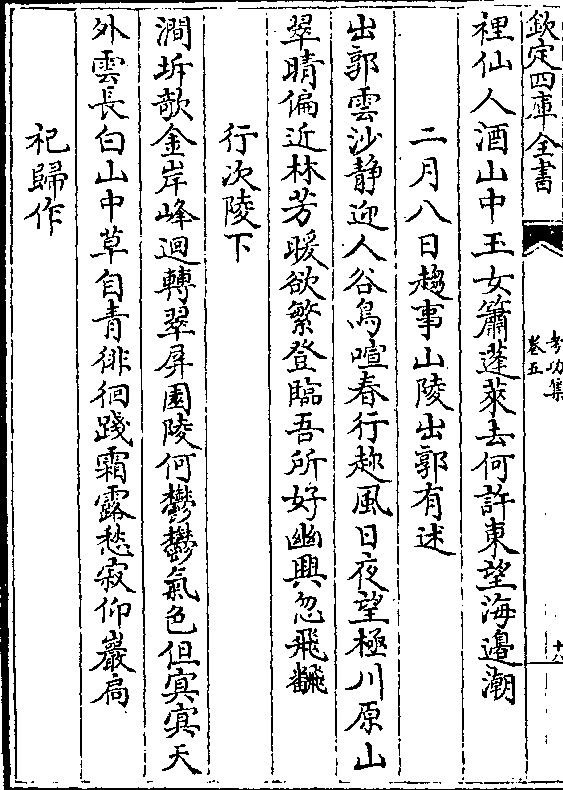 欽定四庫全書
考功集
卷五
十八
裡仙人酒山中玉女簫蓬萊去何許東望海邊潮
二月八日趨事山陵出郭有述
出郭雲沙静迎人谷鳥喧春行趂風日夜望極川原山
翠晴偏近林芳暖欲繁登臨吾所好幽興忽飛飜
行次陵下
澗坼欹金岸峰迴轉翠屏園陵何鬱鬱氣色但冥冥天
外雲長白山中草自青徘徊踐霜露愁寂仰巖扃
祀歸作